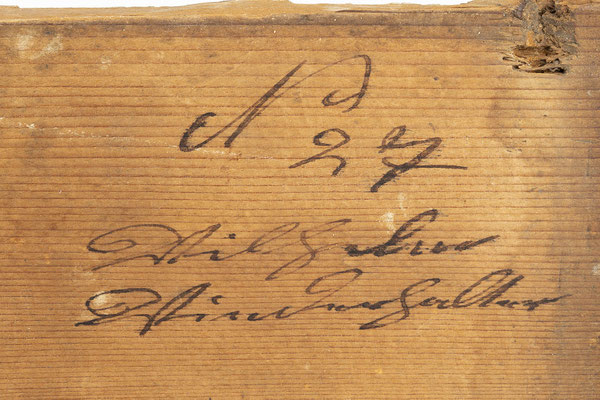 No
27
Wilhelm
Winderhalter